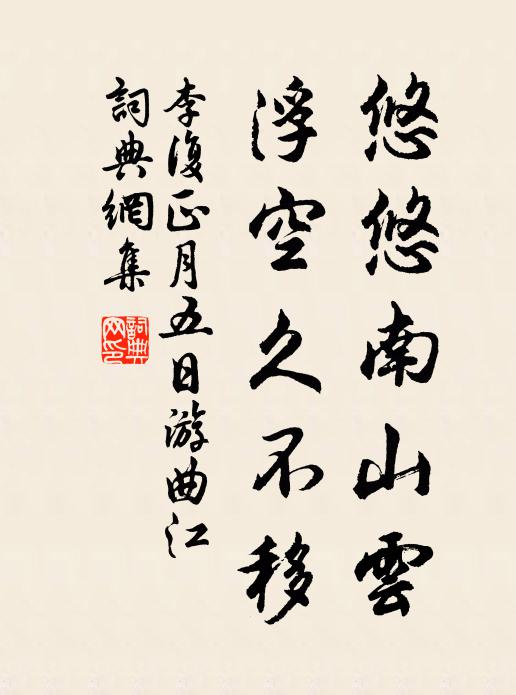 悠悠南山雲
浮空久不移
李復正月五日游曲江
詞典網集
詞典
网印